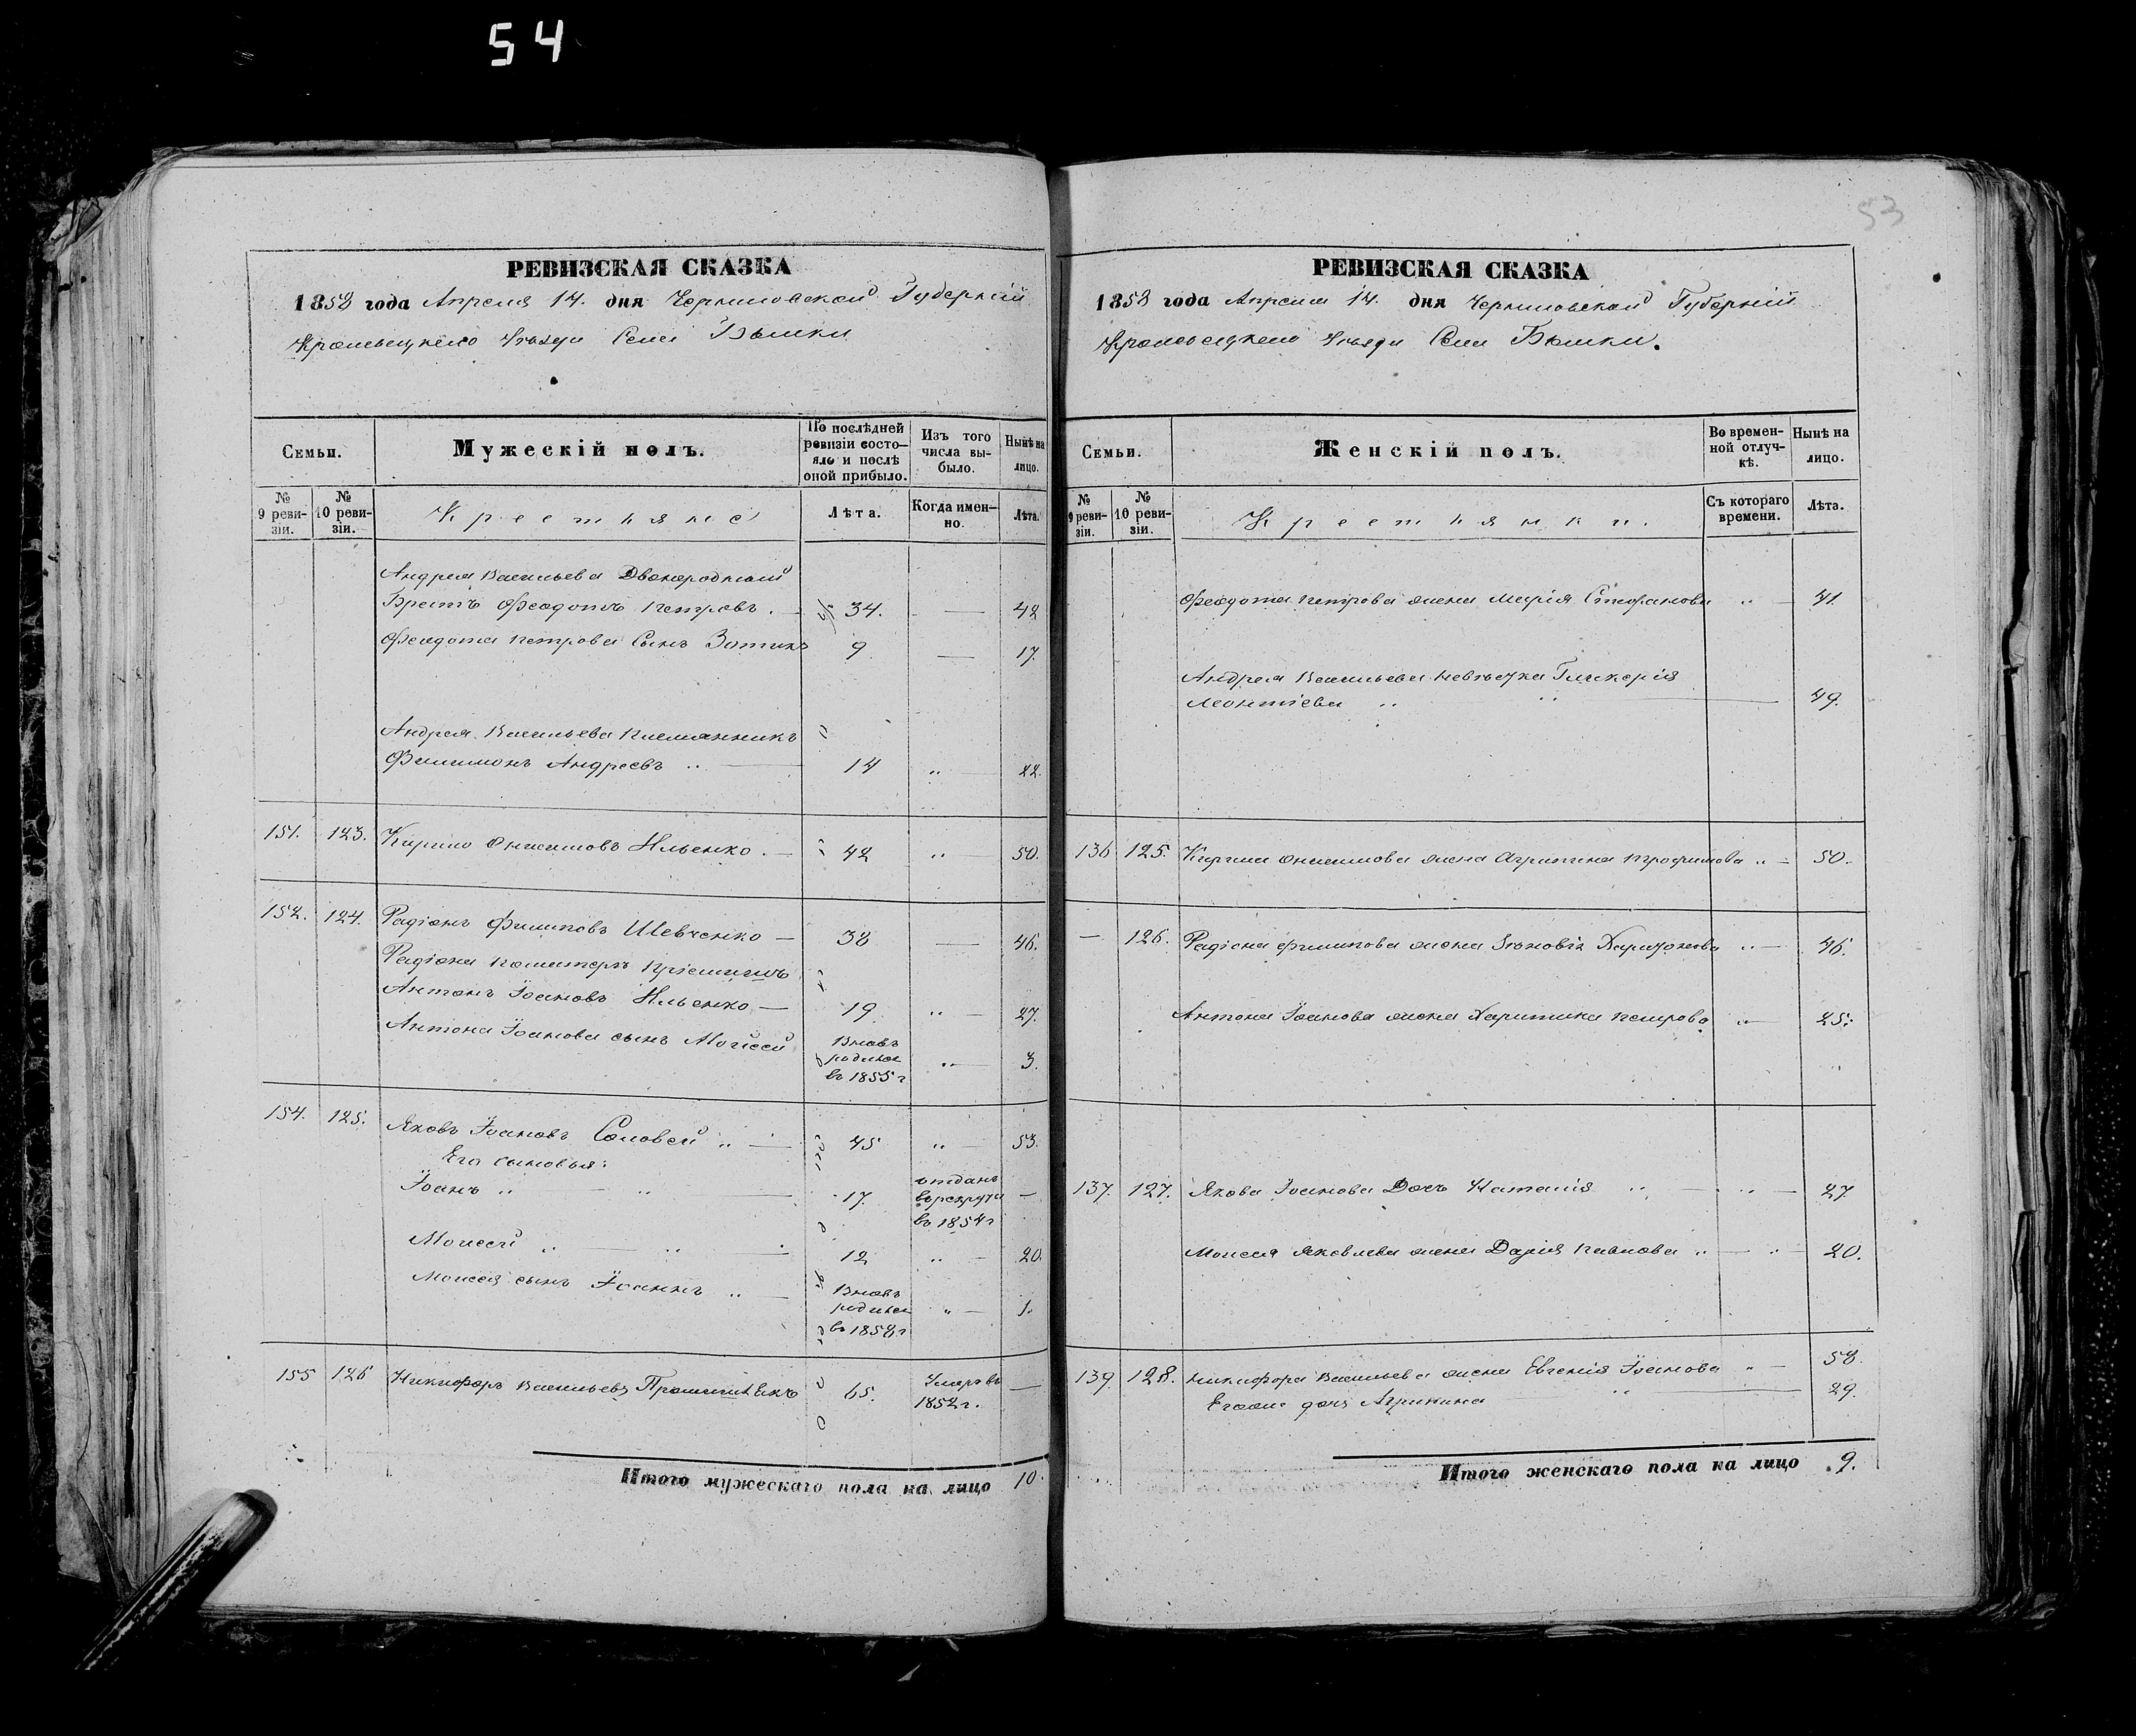 54
53
РЕВИЗСКАЯ СКАЗКА
1858 года Апреля 14. дня Черниговской Губерніи
Кролевецкаго Уѣзда Села Бѣлки
Семьи.
Мужескій полъ.
По послѣдней ревизіи состо-
яло и послѣ
оной прибыло.
Изъ того
числа вы-
было.
Нынѣ на
лицо.
№
9 реви-
зіи.
№
10 реви-
зіи.
Крестьяне
Лѣта.
Когда имен-
но.
Лѣта.
Андрея Васильева Двоюродный
Братъ Феодотъ Петровъ . — 34. — 42
Феодота Петрова Сынъ Зотикъ 9 — 17.
Андрея Васильева племянникъ
Филимонъ Андреевъ „ — 14 „ — 22.
151. 123. Кирило Онисимовъ Ильенко . — 42 „ — 50.
152. 124. Радіонъ Филиповъ Шевченко — 38 — 46.
Радіона Пріемышъ
Антонъ Іоановъ Ильенко — 19 „ — 27.
Антона Іоанова сынъ Моисей Вновь
родился
въ 1855 г „ — 3.
154. 125. Яковъ Іоановъ Соловей „ — 45 „ — 53.
Его сыновья:
Іоанъ „ — „ — 17. отданъ
въ рекруты
въ 1854 г —
Моисей „ — „ — 12 „ — 20.
Моисея сынъ Іоаннъ „ — Вновь
родился
въ 1858 г „ — 1.
155 126 Никифоръ Васильевъ 65. Умеръ въ
1852 г. —
Итого мужескаго пола на лицо 10.
РЕВИЗСКАЯ СКАЗКА
1858 года Апреля 14. дня Черниговской Губерніи
Кролевецкаго Уѣзда Села Бѣлки.
Семьи.
Женскій полъ.
Во времен-
ной отлуч-
кѣ.
Нынѣ на
лицо.
№
9 реви-
зіи.
№
10 реви-
зіи.
Крестьянки.
Съ котораго
времени.
Лѣта.
Феодота Петрова жена Марія Стефанова „ — 41.
Андрея Васильева невѣстка Гликерія
Леонтіева „ — „ — 49.
136 125. Кирила Онисимова жена Агрипина Трофимова „ — 50.
— 126. Радіона Филипова жена Зѣновія Харитонова „ — 46.
Антона Іоанова жена Харитина Петрова „ — 25.
137. 127. Якова Іоанова Дочь Наталія „ — „ — 27
Моисея Яковлева жена Дарія Павлова „ — „ — 20.
139. 128. Никифора Васильева жена Евгенія Іоанова „ — 58.
Егоже дочь Агрипина — „ — 29.
Итого женскаго пола на лицо 9.